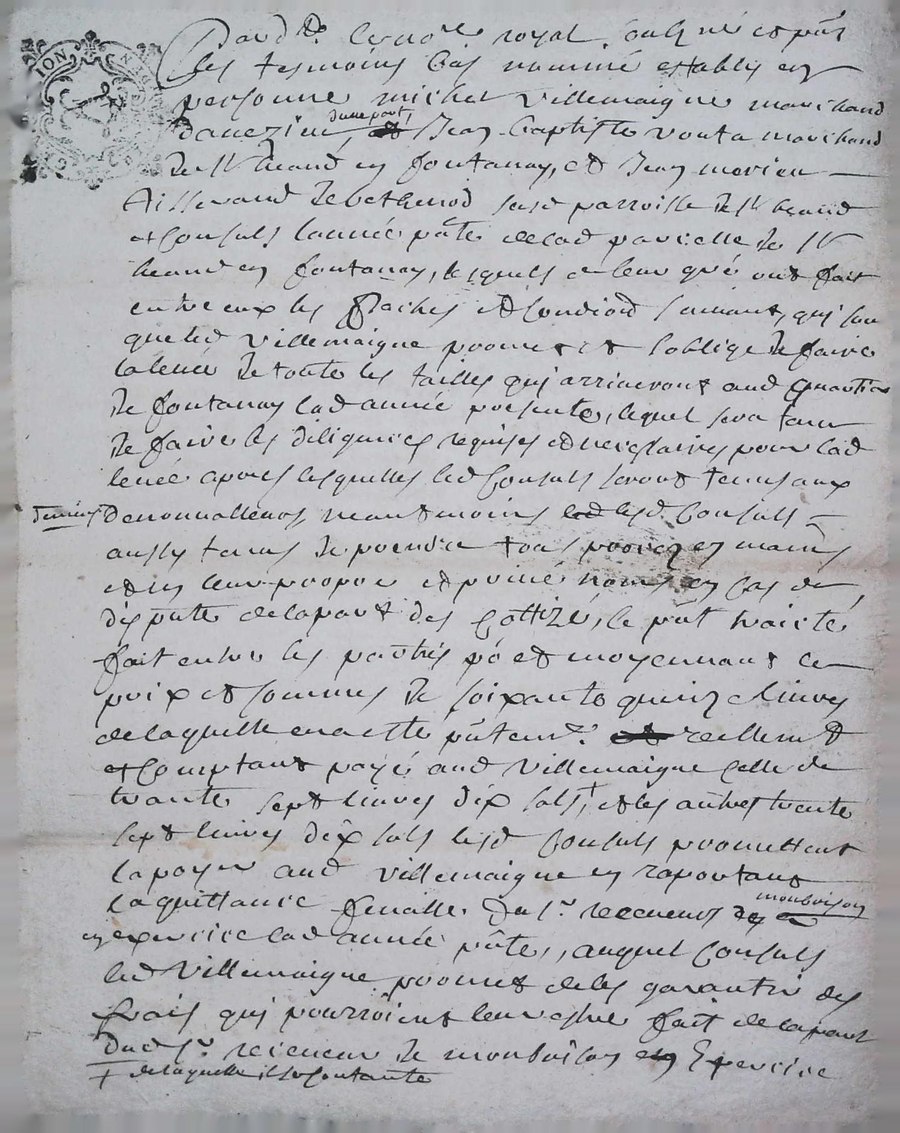 ION
Pard.t le no.re royal soubz né et pñt
les tesmoins bas nommé establis en
personne michel villemaigne marchand
dune part,
davezieu, Jean baptiste vouta marchand
de St heand en fontanay, et Jean
Tisserand de bethenod susd parroisse de St heand
et Consuls lannée pñte de lad parcelle de St
heand en fontanay, lesquels de leur gré ont fait
entre eux les pactes et Conditions suivant, qui son
que led villemaigne promet et soblige de faire
la levée de toute les tailles qui arriveront aud quartier
de fontanay lad année presente, lequel sera tenu
de faire les diligences requises et necessaires pour lad
levée apres lesquelles lesd Consuls seront tenus aux
deniers
neantmoins lesd. Consuls
aussy tenus de prendre en mains
et en leur propre et privé noms en cas de
dispute de la part des Cottizé, le pñt traicté
fait entre les parties po et moyennant le
prix et sommes de soixante quinze livres
de laquelle en a esté pñtem.t reellemt
et Comptant payé aud villemaigne Celle de
trante sept livres dix sols, † et les autres trante
sept livres dix sols lesd Consuls promettent
la payer aud villemaigne en raportant
la quittance finalle du s.r recepveur de
monbrison
en exercice lad année pñte, auquel Consuls
led villemaigne promet de les garantir des
frais qui pourroient leur estre fait de la part
dud s.r recieveur de monbrison en Exercice
† de laquelle il se contante